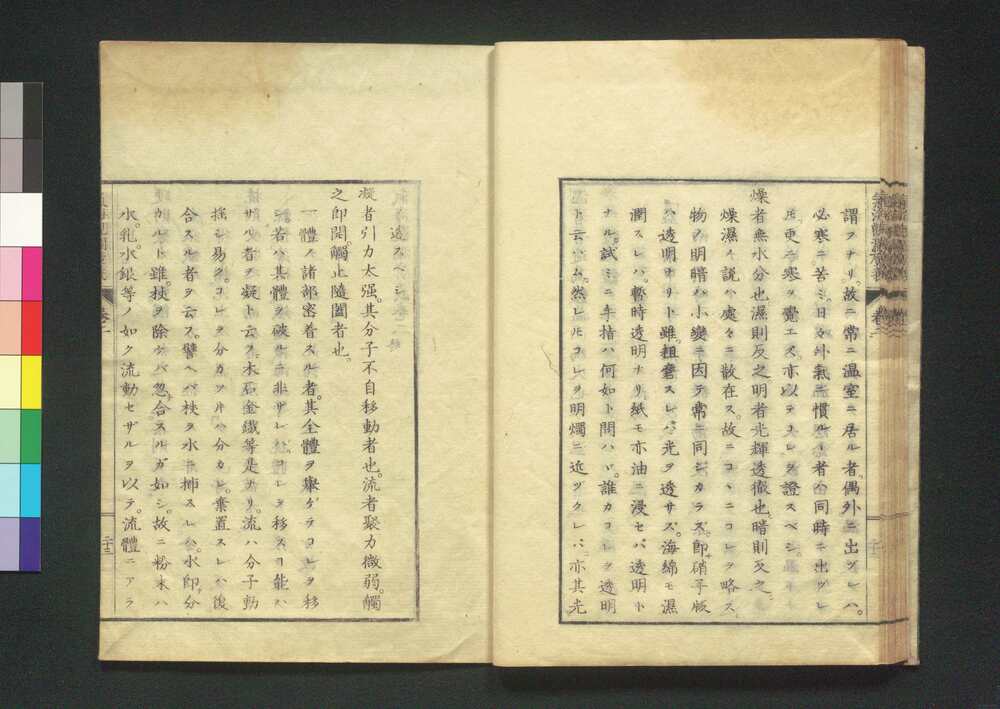 謂フナリ。故ニ常ニ温室ニ居ル者。偶外ニ出ヅレハ。
必寒ニ苦ミ。日々外氣ニ慣ルヽ者ハ同時ニ出ヅレ
𪜈更ニ寒ヲ覺エス。亦以テコレヲ證スベシ。
燥者無水分也濕則反之明者光輝透徹也。暗則反之。
燥濕ノ説ハ處々ニ散在ス。故ニコヽニコレヲ略ス。
物ノ明暗ハ小變ニ因テ常ニ同シカラス。即硝子版
ハ透明ナリト雖。粗磨スレハ光ヲ透サス。海綿モ濕
潤スレハ。暫時透明ナリ紙モ亦油ニ浸セバ透明ト
ナル。試ミニ手指ハ何如ト問ハヽ。誰カコレヲ透明
ト云ハム。然レ𪜈コレヲ明燭ニ近ヅクレバ。亦其光
透スヘシ。
凝者引力太强。其分子不自移動者也。流者聚力微弱。觸
之即開。觸止隨闔者也。
一體ノ諸部密着スル者。其全體ヲ擧ゲテコレヲ移
若ハ其體ヲ破ルニ非ザレハ。コレヲ移スコ能ハ
サル者ヲ凝ト云フ。木石金鐵等是ナリ。流ハ分子動
搖シ易ク。コレヲ分カツ𪜈ハ分カレ。棄置スレハ復
合スル者ヲ云フ。譬ヘバ杖ヲ水ニ挿スレハ。水即分
カルト雖。杖ヲ除ケバ忽合スルガ如シ。故ニ粉末ハ
水。乳。水銀等ノ如ク流動セザルヲ以テ。流體ニアラ